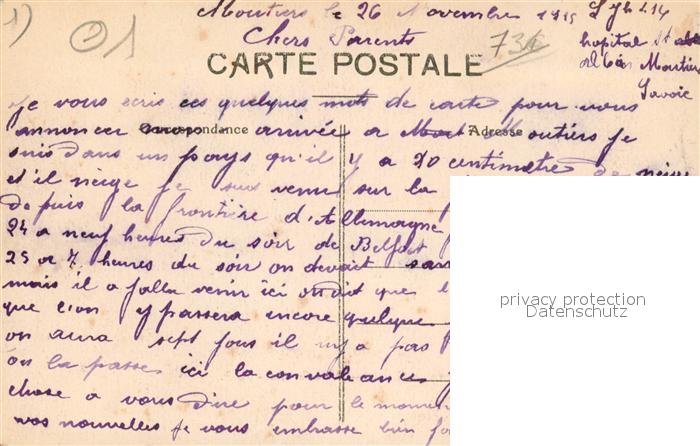 1) 01 Moutiers le 26 Novembre 1915
Chers Parents 73h
hopital St
alban Moutiers
Savoie
CARTE POSTALE
je vous ecris ces quelques mots de carte pour vous
annoncer mon arrivée a Moutiers je
Correspondance Adresse
suis dans un pays qu'il y a 70 centimetre de neige
et il neige je suis venu sur la
depuis la frontière d'Allemagne
24 a neuf heures du soir de Belfort
25 a 7 heures du soir on devait
mais il a fallu venir ici on dit que
que l'on y passera encore quelque
on aura sept jous il n'y a pas
on la passe ici la convaleance
chose a vous dire pour le moment
vos nouvelles je vous embrasse bien
privacy protection
Datenschutz